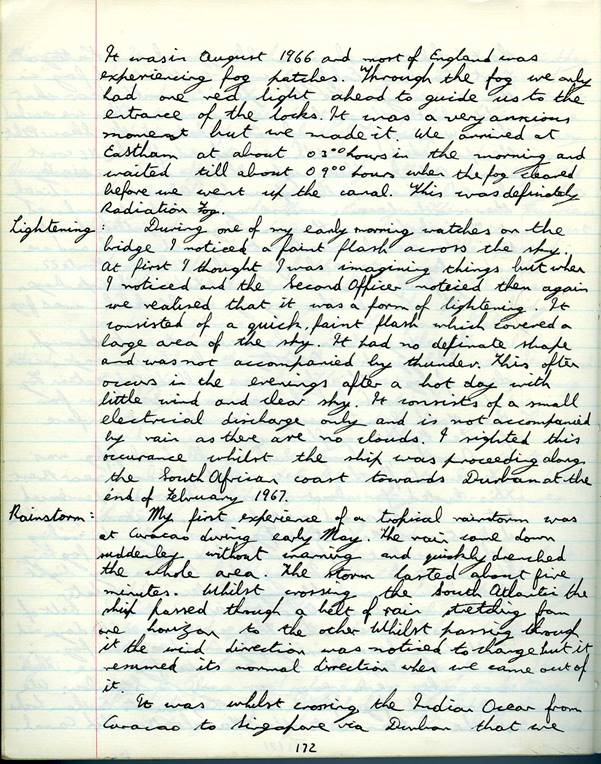 It was in August 1966 and most of England was
experiencing fog patches. Through the fog we only
had one red light ahead to guide us to the
entrance of the locks. It was a very anxious
moment but we made it. We arrived at
Eastham at about 03⁰⁰ hours in the morning and
waited till about 09⁰⁰ hours when the fog cleared
before we went up the canal. This was definately
Radiation Fog.
Lightening: During one of my early morning watches on the
bridge I noticed a faint flash across the sky.
At first I thought I was imagining things but when
I noticed and the Second Officer noticed them again
we realised that it was a form of lightening. It
consisted of a quick, faint flash which covered a
large area of the sky. It had no definate shape
and was not accompanied by thunder. This often
occurs in the evenings after a hot day with
little wind and clear sky. It consists of a small
electrical discharge only and is not accompanied
by rain as there are no clouds. I sighted this
occurance whilst the ship was proceeding along
the South African coast towards Durban at the
end of February 1967.
Rainstorm: My first experience of a tropical rainstorm was
at Curacao during early May. The rain came down
suddenley without warning and quickly drenched
the whole area. The storm lasted about five
minutes. Whilst crossing the South Atlantic the
ship passed through a belt of rain stretching from
one horizon to the other. Whilst passing through
it the wind direction was noticed to change but it
resumed its normal direction when we came out of
it.
It was whilst crossing the Indian Ocean from
Curacao to Singapore via Durban that we
172